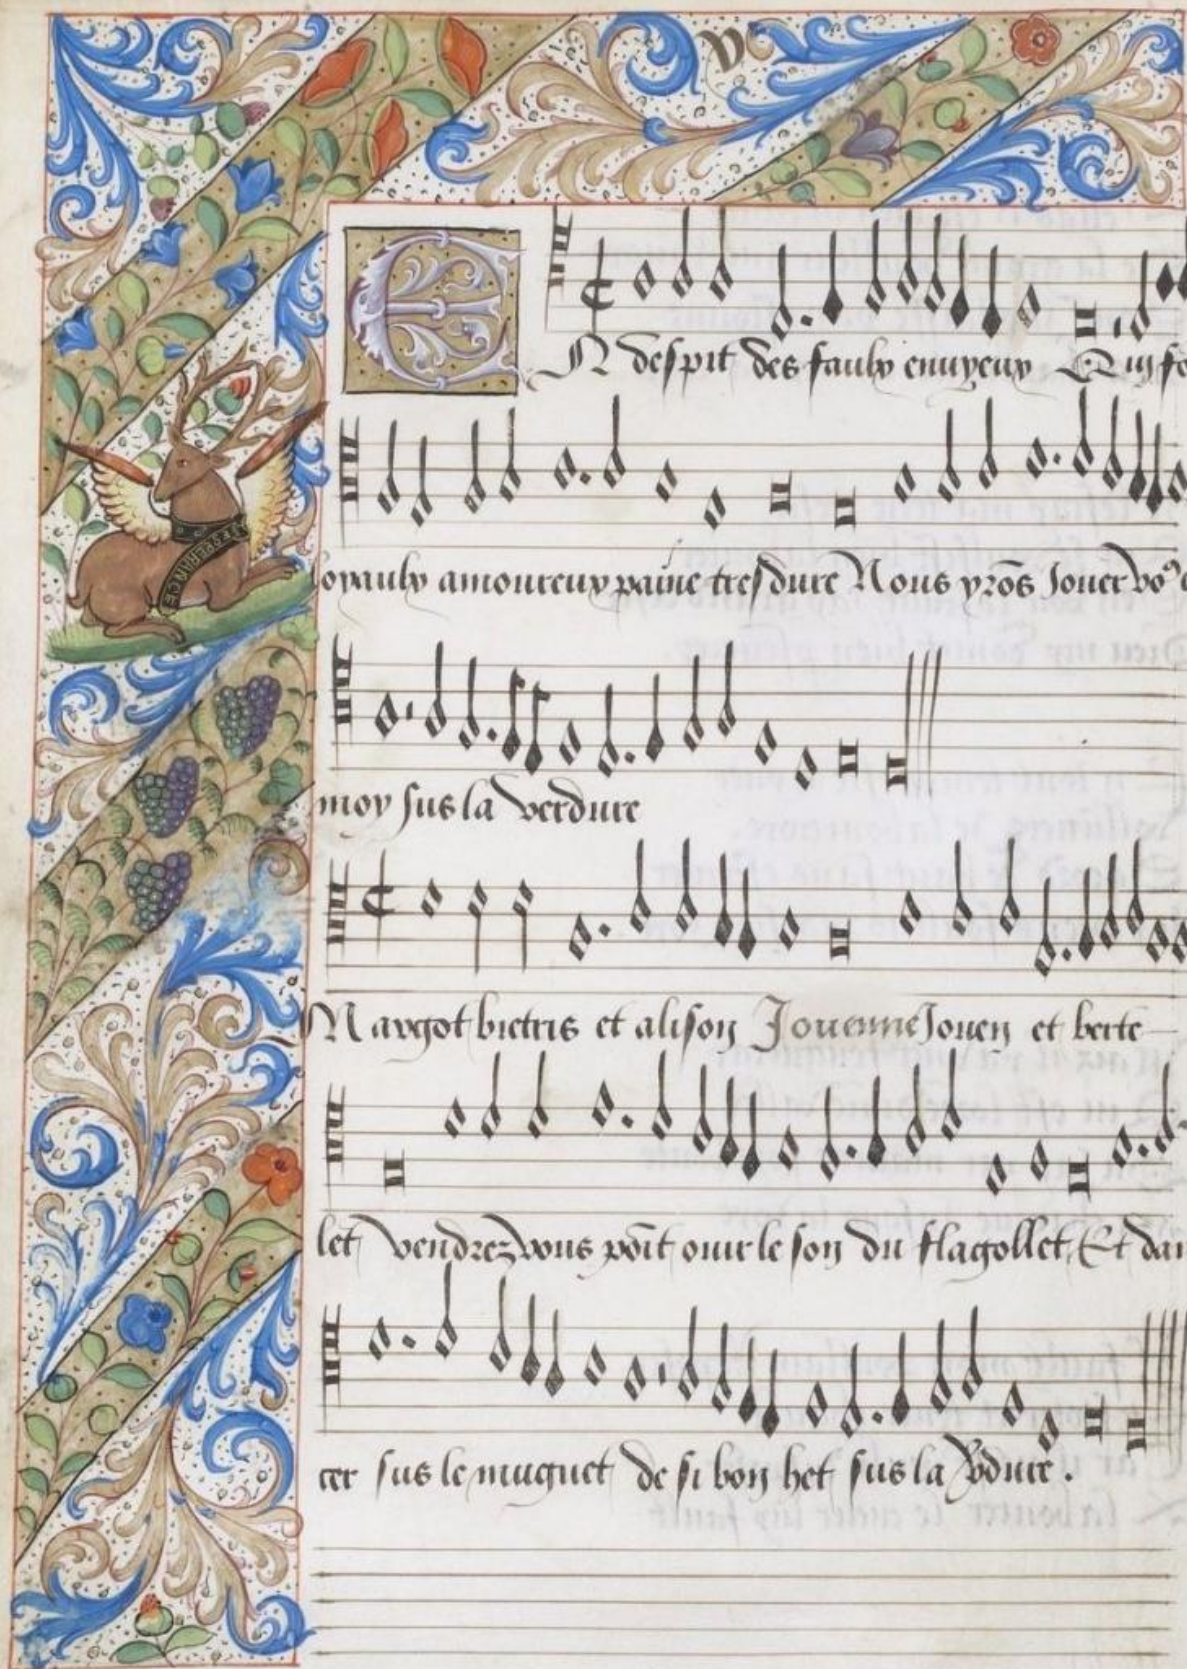 V
En despit des faulx enuyeux Qui fo
loyaulx amoureux paine tresdure Nous yrõs Jouer vo⁹ e
ESPERANCE
moy sus la verdure
Margot bietris et alison Jouenne Jouen et berte
let vendrez vous põit ouir le son du flagollet Et dan
cer sus le muguet de si bon het sus la v̾dure.